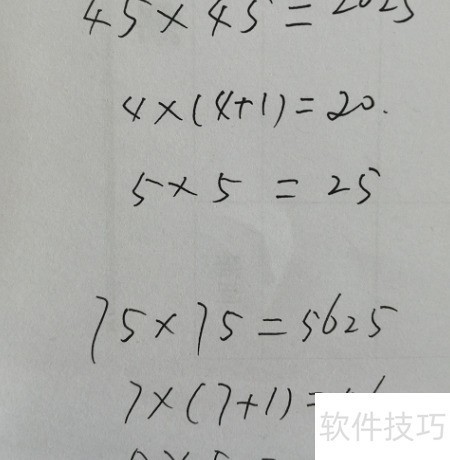 45×45=2025
4×(4+1)=20.
5×5=25
75×75=5625
7×(7+1)=
软件技巧